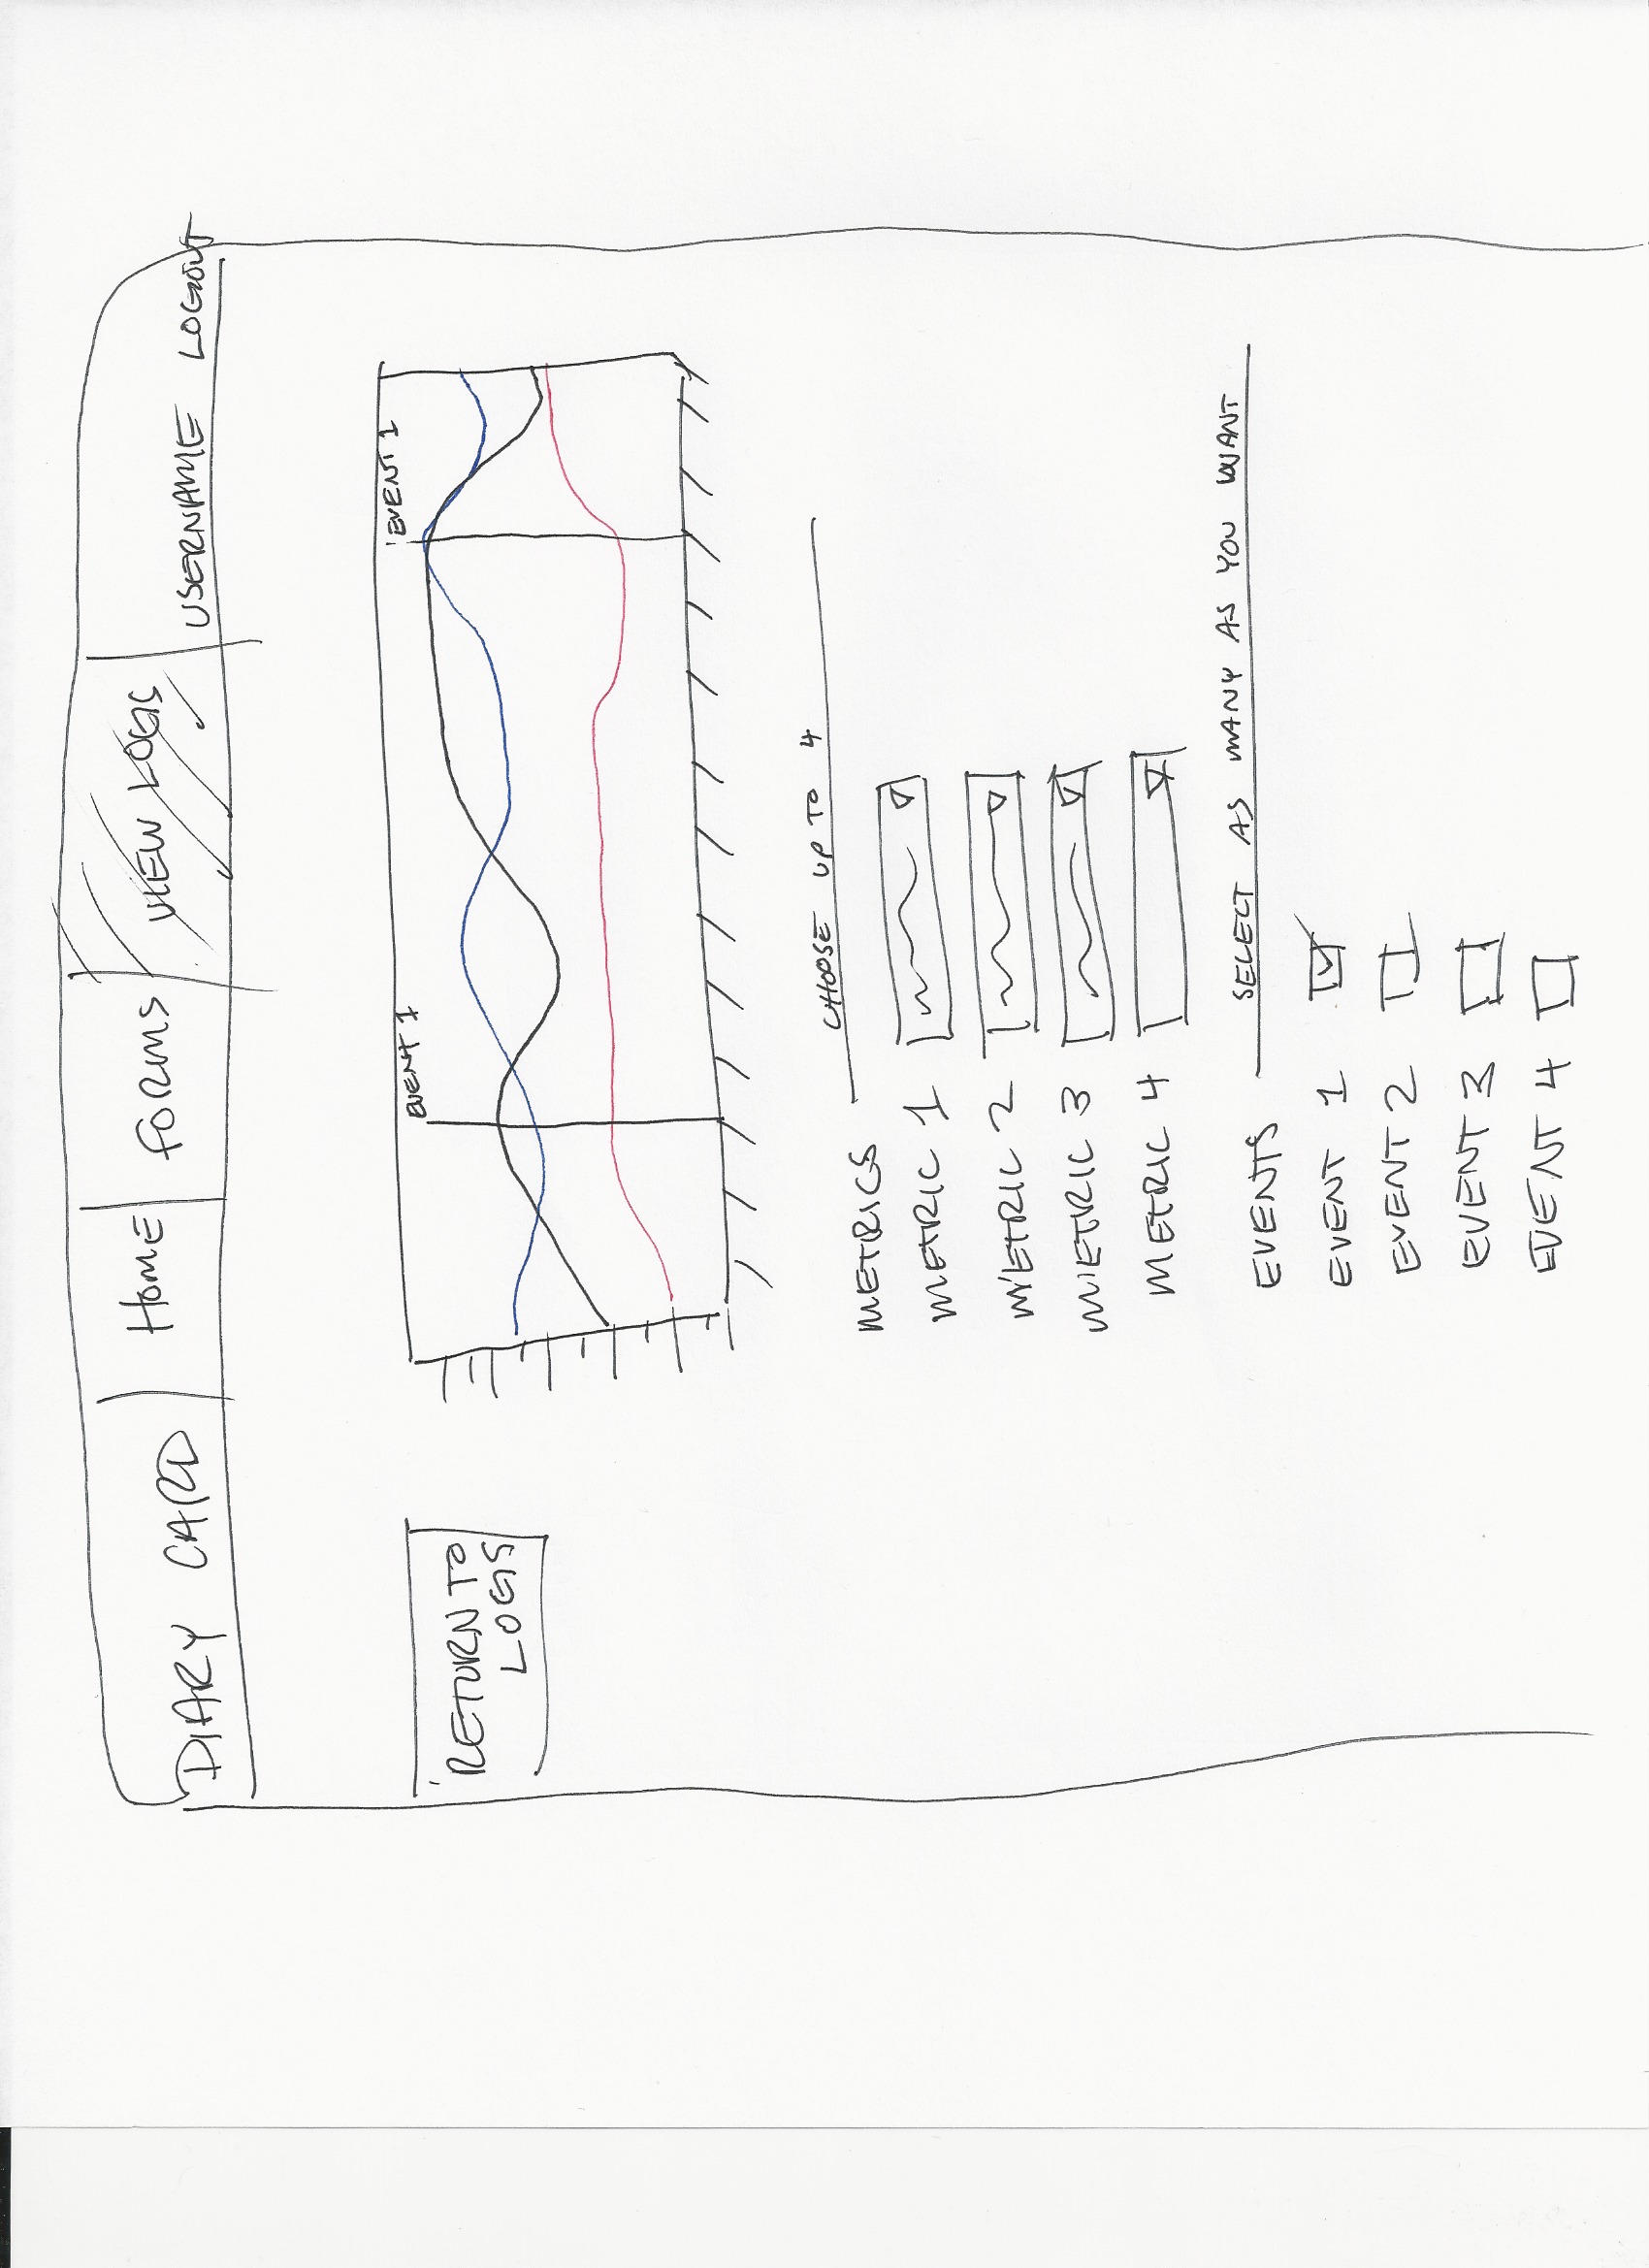 DIARY CARD Home forms VIEW LOGS USERNAME LOGOUT
RETURN TO
LOGS
EVENT 1 EVENT 1
METRICS CHOOSE UP TO 4
METRIC 1
METRIC 2
METRIC 3
METRIC 4
EVENTS SELECT AS MANY AS YOU WANT
EVENT 1
EVENT 2
EVENT 3
EVENT 4